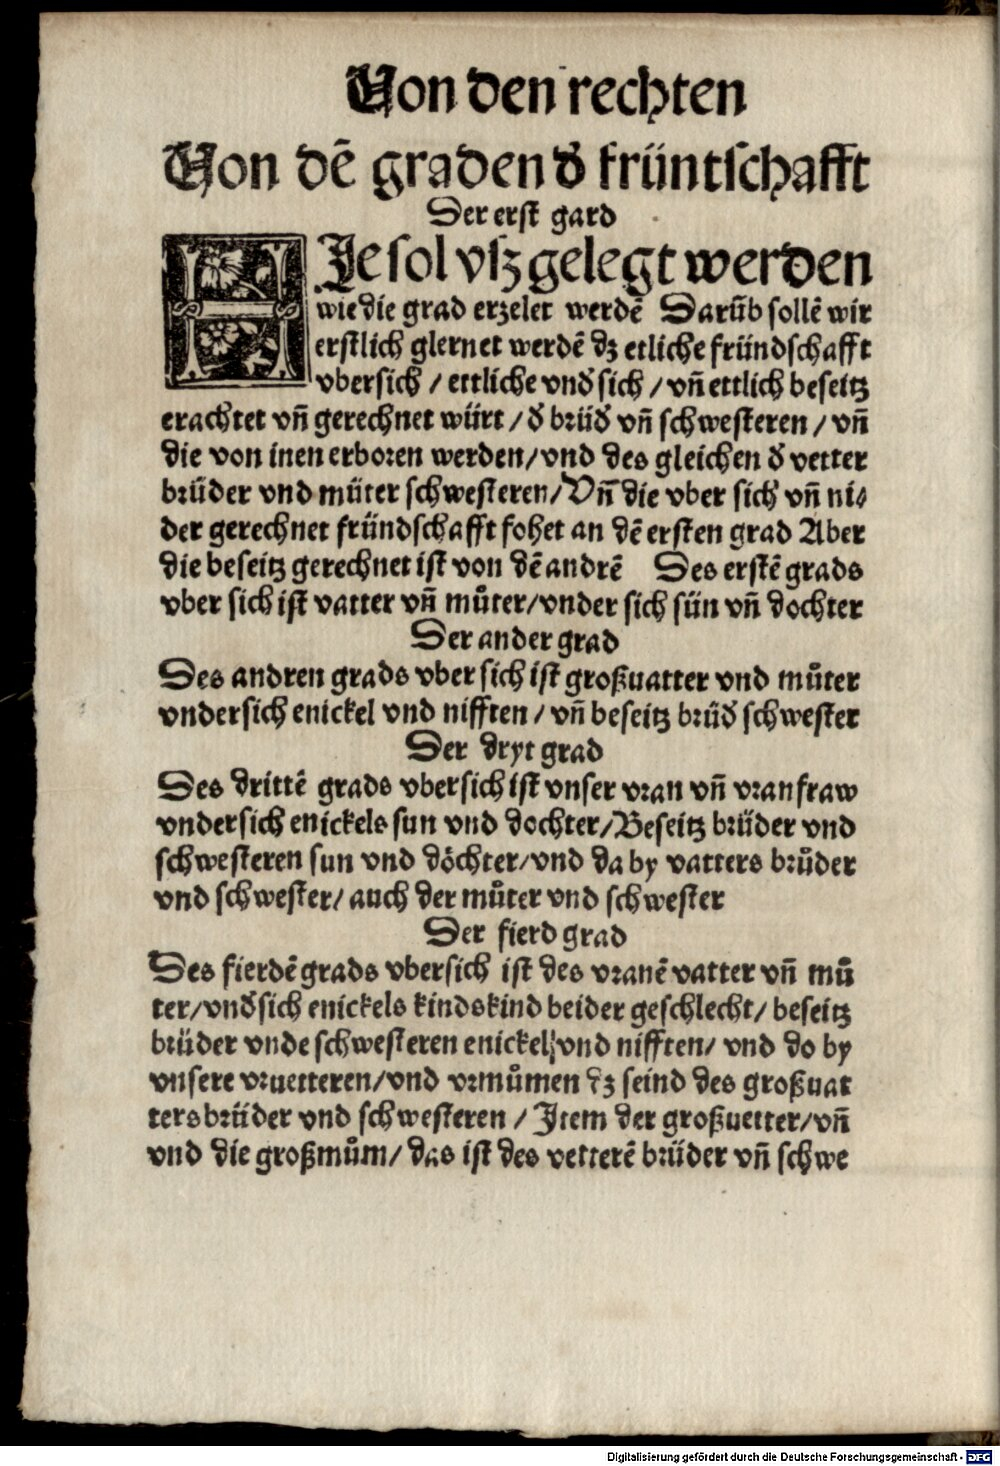 Von den rechten
Von dē graden d' früntschafft
Der erst gard
HJe sol vsz gelegt werden
wie die grad erzelet werdē Darūb sollē wir
erstlich glernet werdē dz etliche fründschafft
vbersich / ettliche vnd'sich / vn̄ ettlich beseitz
erachtet vn̄ gerechnet würt / d' brüd' vn̄ schwesteren / vn̄
die von inen erboren werden / vnd des gleichen d' vetter
brüder vnd müter schwesteren / Vn̄ die vber sich vn̄ ni⸗
der gerechnet fründschafft fohet an dē ersten grad Aber
die beseitz gerechnet ist von dē andrē Des erstē grads
vber sich ist vatter vn̄ můter / vnder sich sün vn̄ dochter
Der ander grad
Des andren grads vber sich ist großuatter vnd můter
vndersich enickel vnd nifften / vn̄ beseitz brůd' schwester
Der dryt grad
Des drittē grads vbersich ist vnser vran vn̄ vranfraw
vndersich enickels sun vnd dochter / Beseitz brüder vnd
schwesteren sun vnd döchter / vnd da by vatters brůder
vnd schwester / auch der můter vnd schwester
Der fierd grad
Des fierdē grads vbersich ist des vranē vatter vn̄ mů
ter / vnd'sich enickels kindskind beider geschlecht / beseitz
brüder vnde schwesteren enickel / vnd nifften / vnd do by
vnsere vruetteren / vnd vrmůmen dz seind des großuat
ters brüder vnd schwesteren / Jtem der großuetter / vn̄
vnd die großmům / das ist des vetterē brüder vn̄ schwe
Digitalisierung gefördert durch die Deutsche Forschungsgemeinschaft - DFG